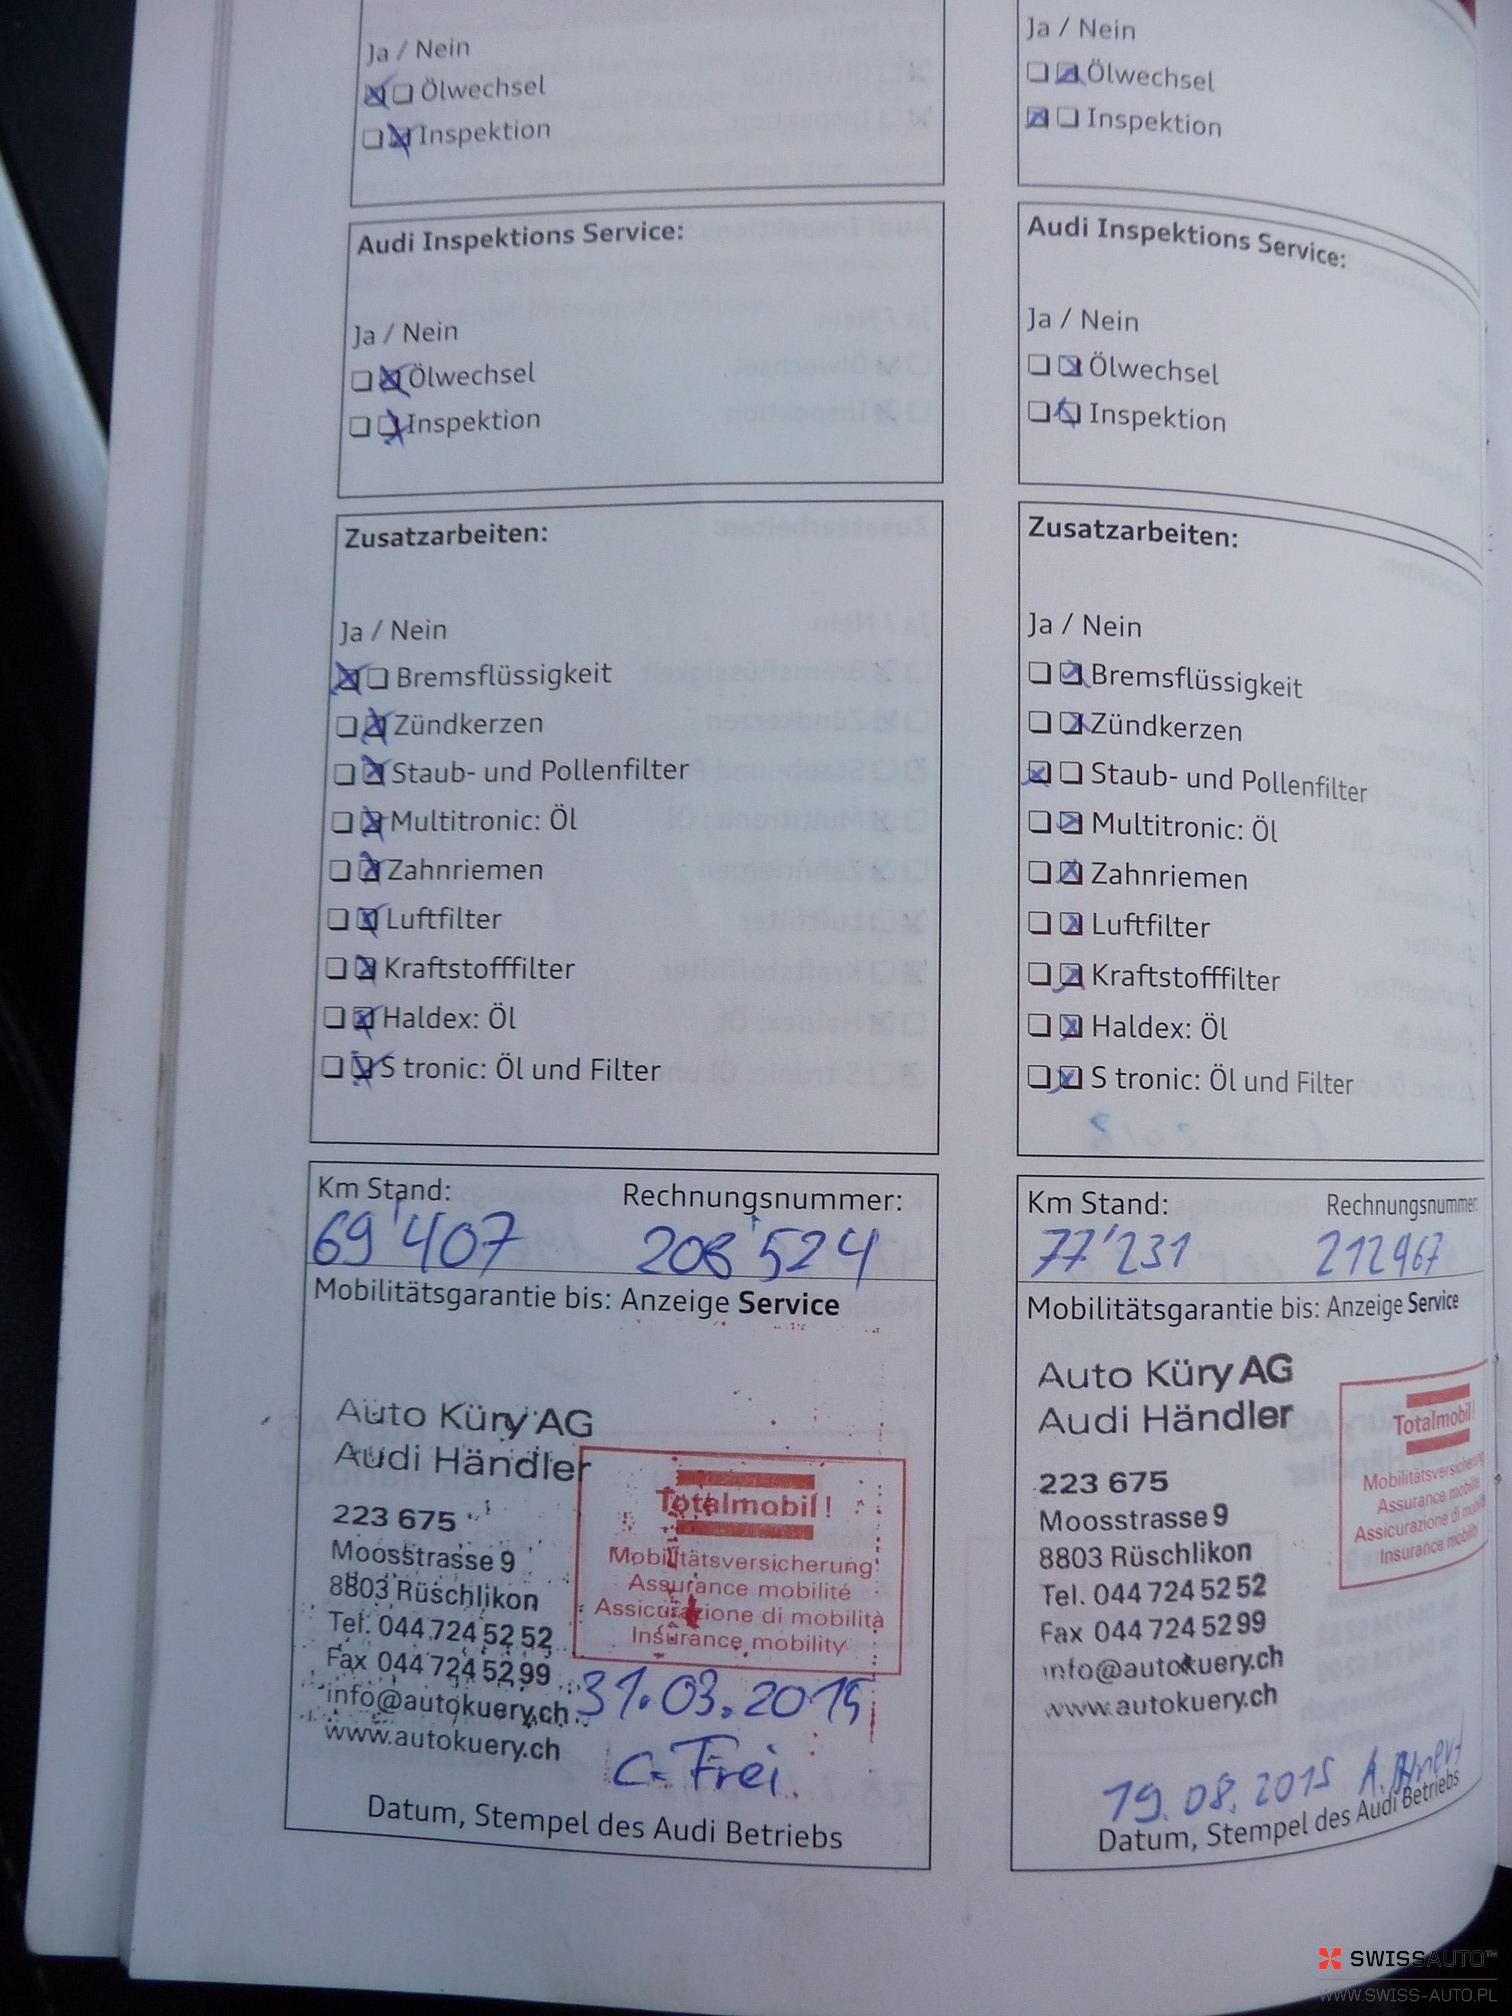 Ja / Nein
Ölwechsel
Inspektion
Audi Inspektions Service:
Ja / Nein
Ölwechsel
Inspektion
Zusatzarbeiten:
Ja / Nein
Bremsflüssigkeit
Zündkerzen
Staub- und Pollenfilter
Multitronic: Öl
Zahnriemen
Luftfilter
Kraftstofffilter
Haldex: Öl
S tronic: Öl und Filter
Km Stand: Rechnungsnummer:
69'407 208'524
Mobilitätsgarantie bis: Anzeige Service
Auto Küry AG
Audi Händler
223 675
Moosstrasse 9
8803 Rüschlikon
Tel. 044 724 52 52
Fax 044 724 52 99
info@autokuery.ch
www.autokuery.ch
Totalmobil!
Mobilitätsversicherung
Assurance mobilité
Assicurazione di mobilità
Insurance mobility
31.03.2015
C. Frei
Datum, Stempel des Audi Betriebs
Ja / Nein
Ölwechsel
Inspektion
Audi Inspektions Service:
Ja / Nein
Ölwechsel
Inspektion
Zusatzarbeiten:
Ja / Nein
Bremsflüssigkeit
Zündkerzen
Staub- und Pollenfilter
Multitronic: Öl
Zahnriemen
Luftfilter
Kraftstofffilter
Haldex: Öl
S tronic: Öl und Filter
Km Stand: Rechnungsnummer:
77'231 212967
Mobilitätsgarantie bis: Anzeige Service
Auto Küry AG
Audi Händler
223 675
Moosstrasse 9
8803 Rüschlikon
Tel. 044 724 52 52
Fax 044 724 52 99
info@autokuery.ch
www.autokuery.ch
Totalmobil!
Mobilitätsversicherung
Assurance mobilité
Assicurazione di mobilità
Insurance mobility
19.08.2015 A.
Datum, Stempel des Audi Betriebs
SWISSAUTO™
WWW.SWISS-AUTO.PL